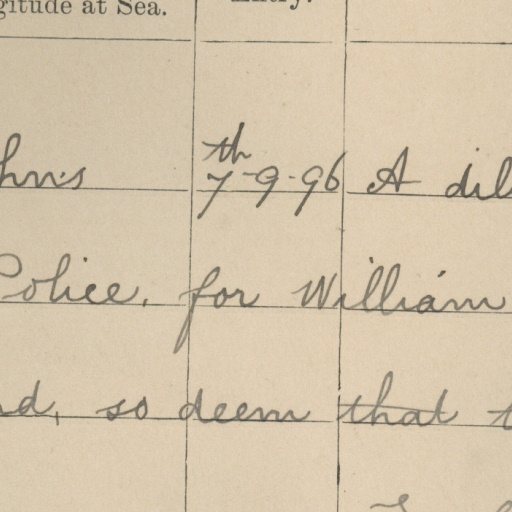 gitude at Sea. Entry.
hn's 7th-9-96 A dil
Police, for William
d, so deem that t